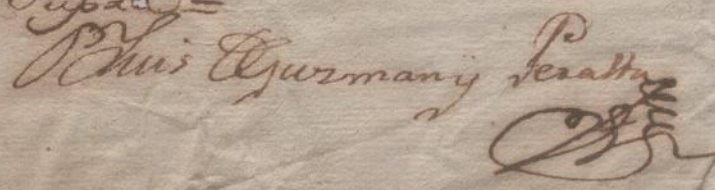 Luis de Guzman y Peralta